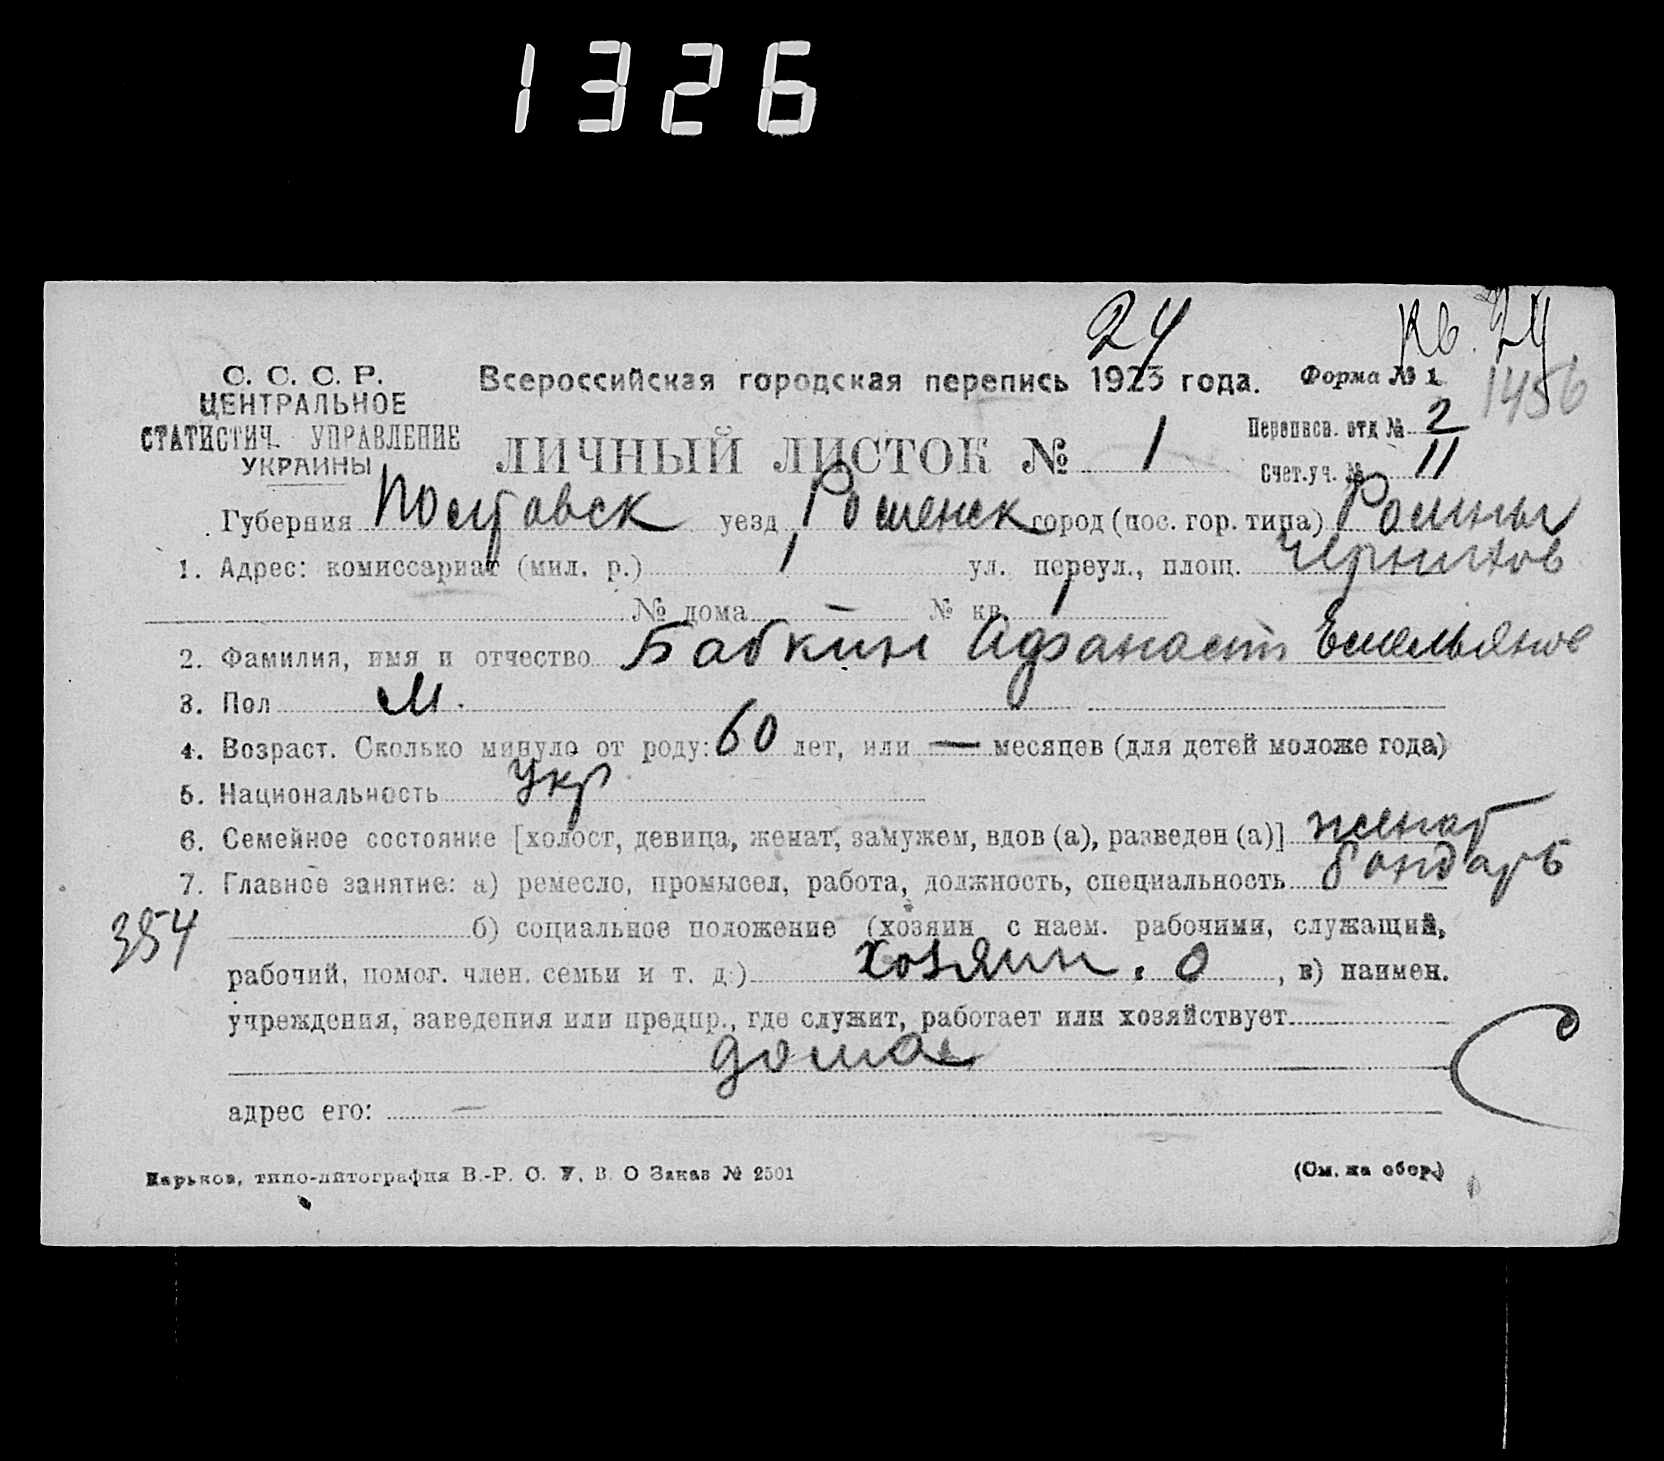 1326
24
кв. 24
С. С. С. Р.
ЦЕНТРАЛЬНОЕ
СТАТИСТИЧ. УПРАВЛЕНИЕ
УКРАИНЫ
Всероссийская городская перепись 1923 года.
Форма № 1
1456
ЛИЧНЫЙ ЛИСТОК № 1
Переписн. отд № 2
Счет.уч. № 11
Губерния Полтавск уезд Роменск город (пос. гор. типа) Ромны
1. Адрес: комиссариат (мил. р.) 1 ул. переул., площ. Чернигов
№ дома – № кв. 1
2. Фамилия, имя и отчество Бабкин Афанасий Емельянов
3. Пол м.
4. Возраст. Сколько минуло от роду: 60 лет, или — месяцев (для детей моложе года)
5. Национальность Укр
6. Семейное состояние [холост, девица, женат, замужем, вдов (а), разведен (а)] женат
7. Главное занятие: а) ремесло, промысел, работа, должность, специальность бондарь
354
б) социальное положение (хозяин с наем. рабочими, служащий,
рабочий, помог. член. семьи и т. д.) хозяин. О, в) наимен.
учреждения, заведения или предпр., где служит, работает или хозяйствует
дома
адрес его: —
Харьков, типо-литография В.-Р. О. У, В. О Заказ № 2501
(См. на обор.)